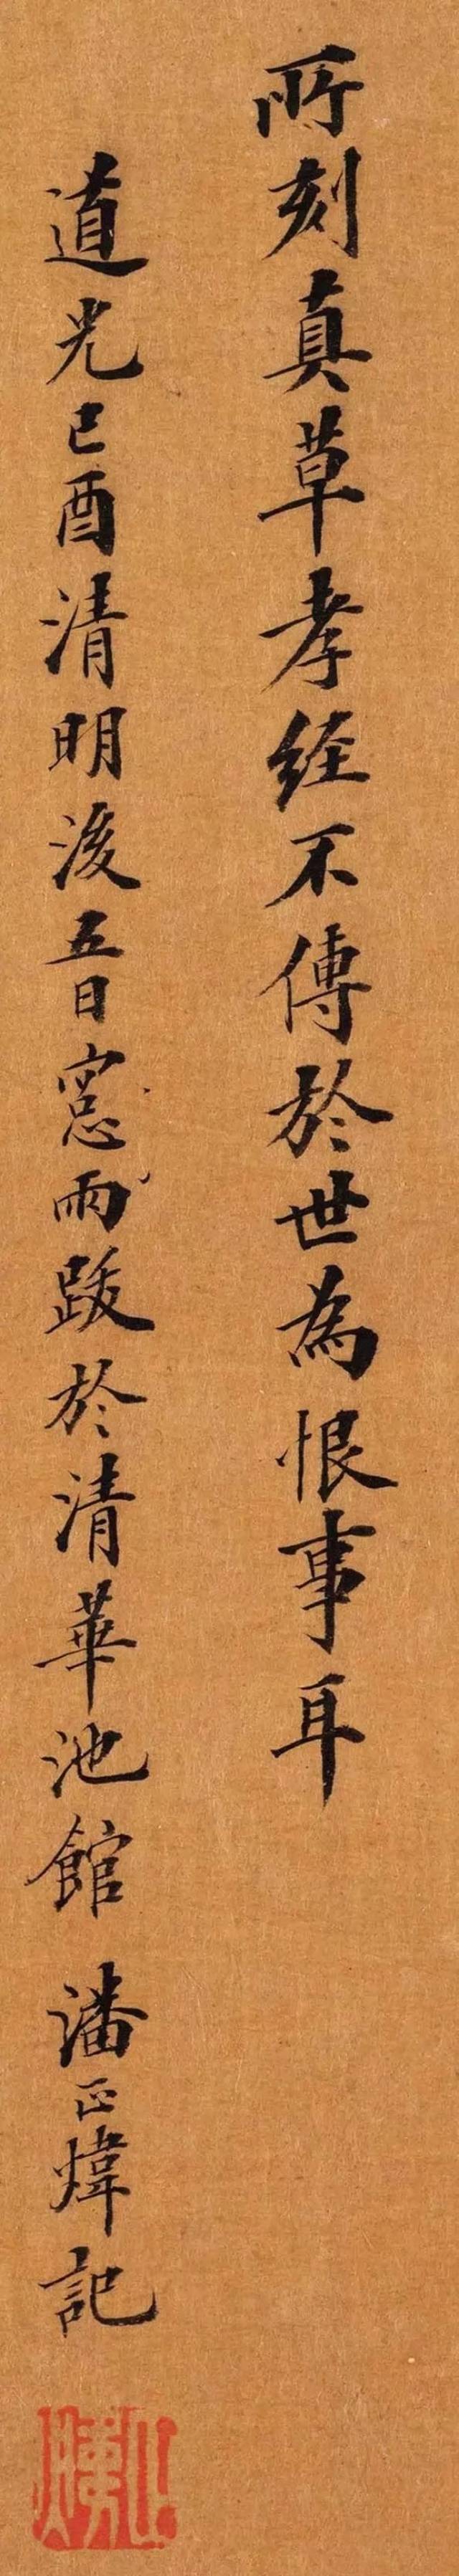 所刻真草孝經不傳於世為恨事耳
道光己酉清明後五日窓雨跋於清華池館 潘正煒記